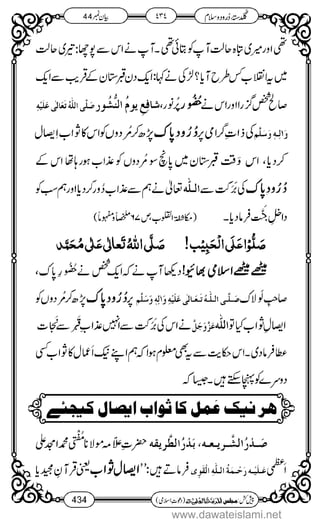 گلدستۂ درود وسلام ٤٣٤ بیان نمبر 44
تھی اور میری تباہ حالت آپ کو بتائی تھی۔ آپ نے اس سے پوچھا: تیری حالت
میں یہ انقلاب کس طرح آیا؟ لڑکی نے کہا: ایک دن قبرستان کے قریب سے ایک
صالح شخص گزرا اور اس نے حُضُور پُرنور، شافِعِ یومُ النُّشُور صَلَّی اللّٰہُ تَعَالٰی عَلَیْہِ
وَاٰلِہٖ وَسَلَّم کی ذاتِ گرامی پر دُرُودِ پاک پڑھ کر مُردوں کو اس کا ثواب ایصال
کر دیا، اس وقت قبرستان میں پانچ سو مُردوں کو عذاب ہو رہا تھا، اس کے
دُرُودِ پاک کی بَرَکت سے اللّٰہ تعالٰی نے ہم سے عذاب دور کر دیا اور ہم سب کو
داخلِ جنّت فرمادیا۔ (مکاشفۃ القلوب، ص ٦٧ ملخصاً ومفہوماً)
صَلُّوْا عَلَی الْحَبِیْب! صَلَّی اللّٰہُ تَعَالٰی عَلٰی مُحَمَّد
میٹھے میٹھے اسلامی بھائیو! دیکھا آپ نے کہ ایک شخص نے حُضُور پاک،
صاحبِ لَولاک صَلَّی اللّٰہُ تَعَالٰی عَلَیْہِ وَاٰلِہٖ وَسَلَّم پر دُرُودِ پاک پڑھ کر مُردوں کو
ایصالِ ثواب کیا تو اللّٰہ عَزَّوَجَلَّ نے اس کی بَرَکت سے انہیں عذابِ قَبْر سے نَجات
عطا فرمادی۔ اس حکایت سے یہ بھی معلوم ہوا کہ ہم اپنے نیک اَعْمال کا ثواب کسی
دوسرے کو پہنچا سکتے ہیں۔ جیسا کہ
ہر نیک عَمل کا ثواب ایصال کیجئے
صَدْرُ الشَّریعہ، بَدْرُ الطَّریقہ حضرتِ علّامہ مولانا مفتی محمد امجد علی
اعظمی عَلَیْہِ رَحْمَۃُ اللّٰہِ الْقَوِی فرماتے ہیں: ’’ایصالِ ثواب یعنی قرآنِ مجید یا
434
www.dawateislami.net